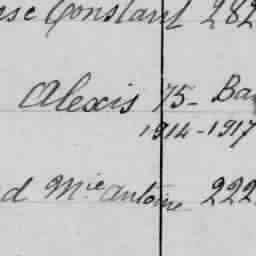 Constant 282
Alexis 75- Ba
1914-1917
d Mie Antoine 222